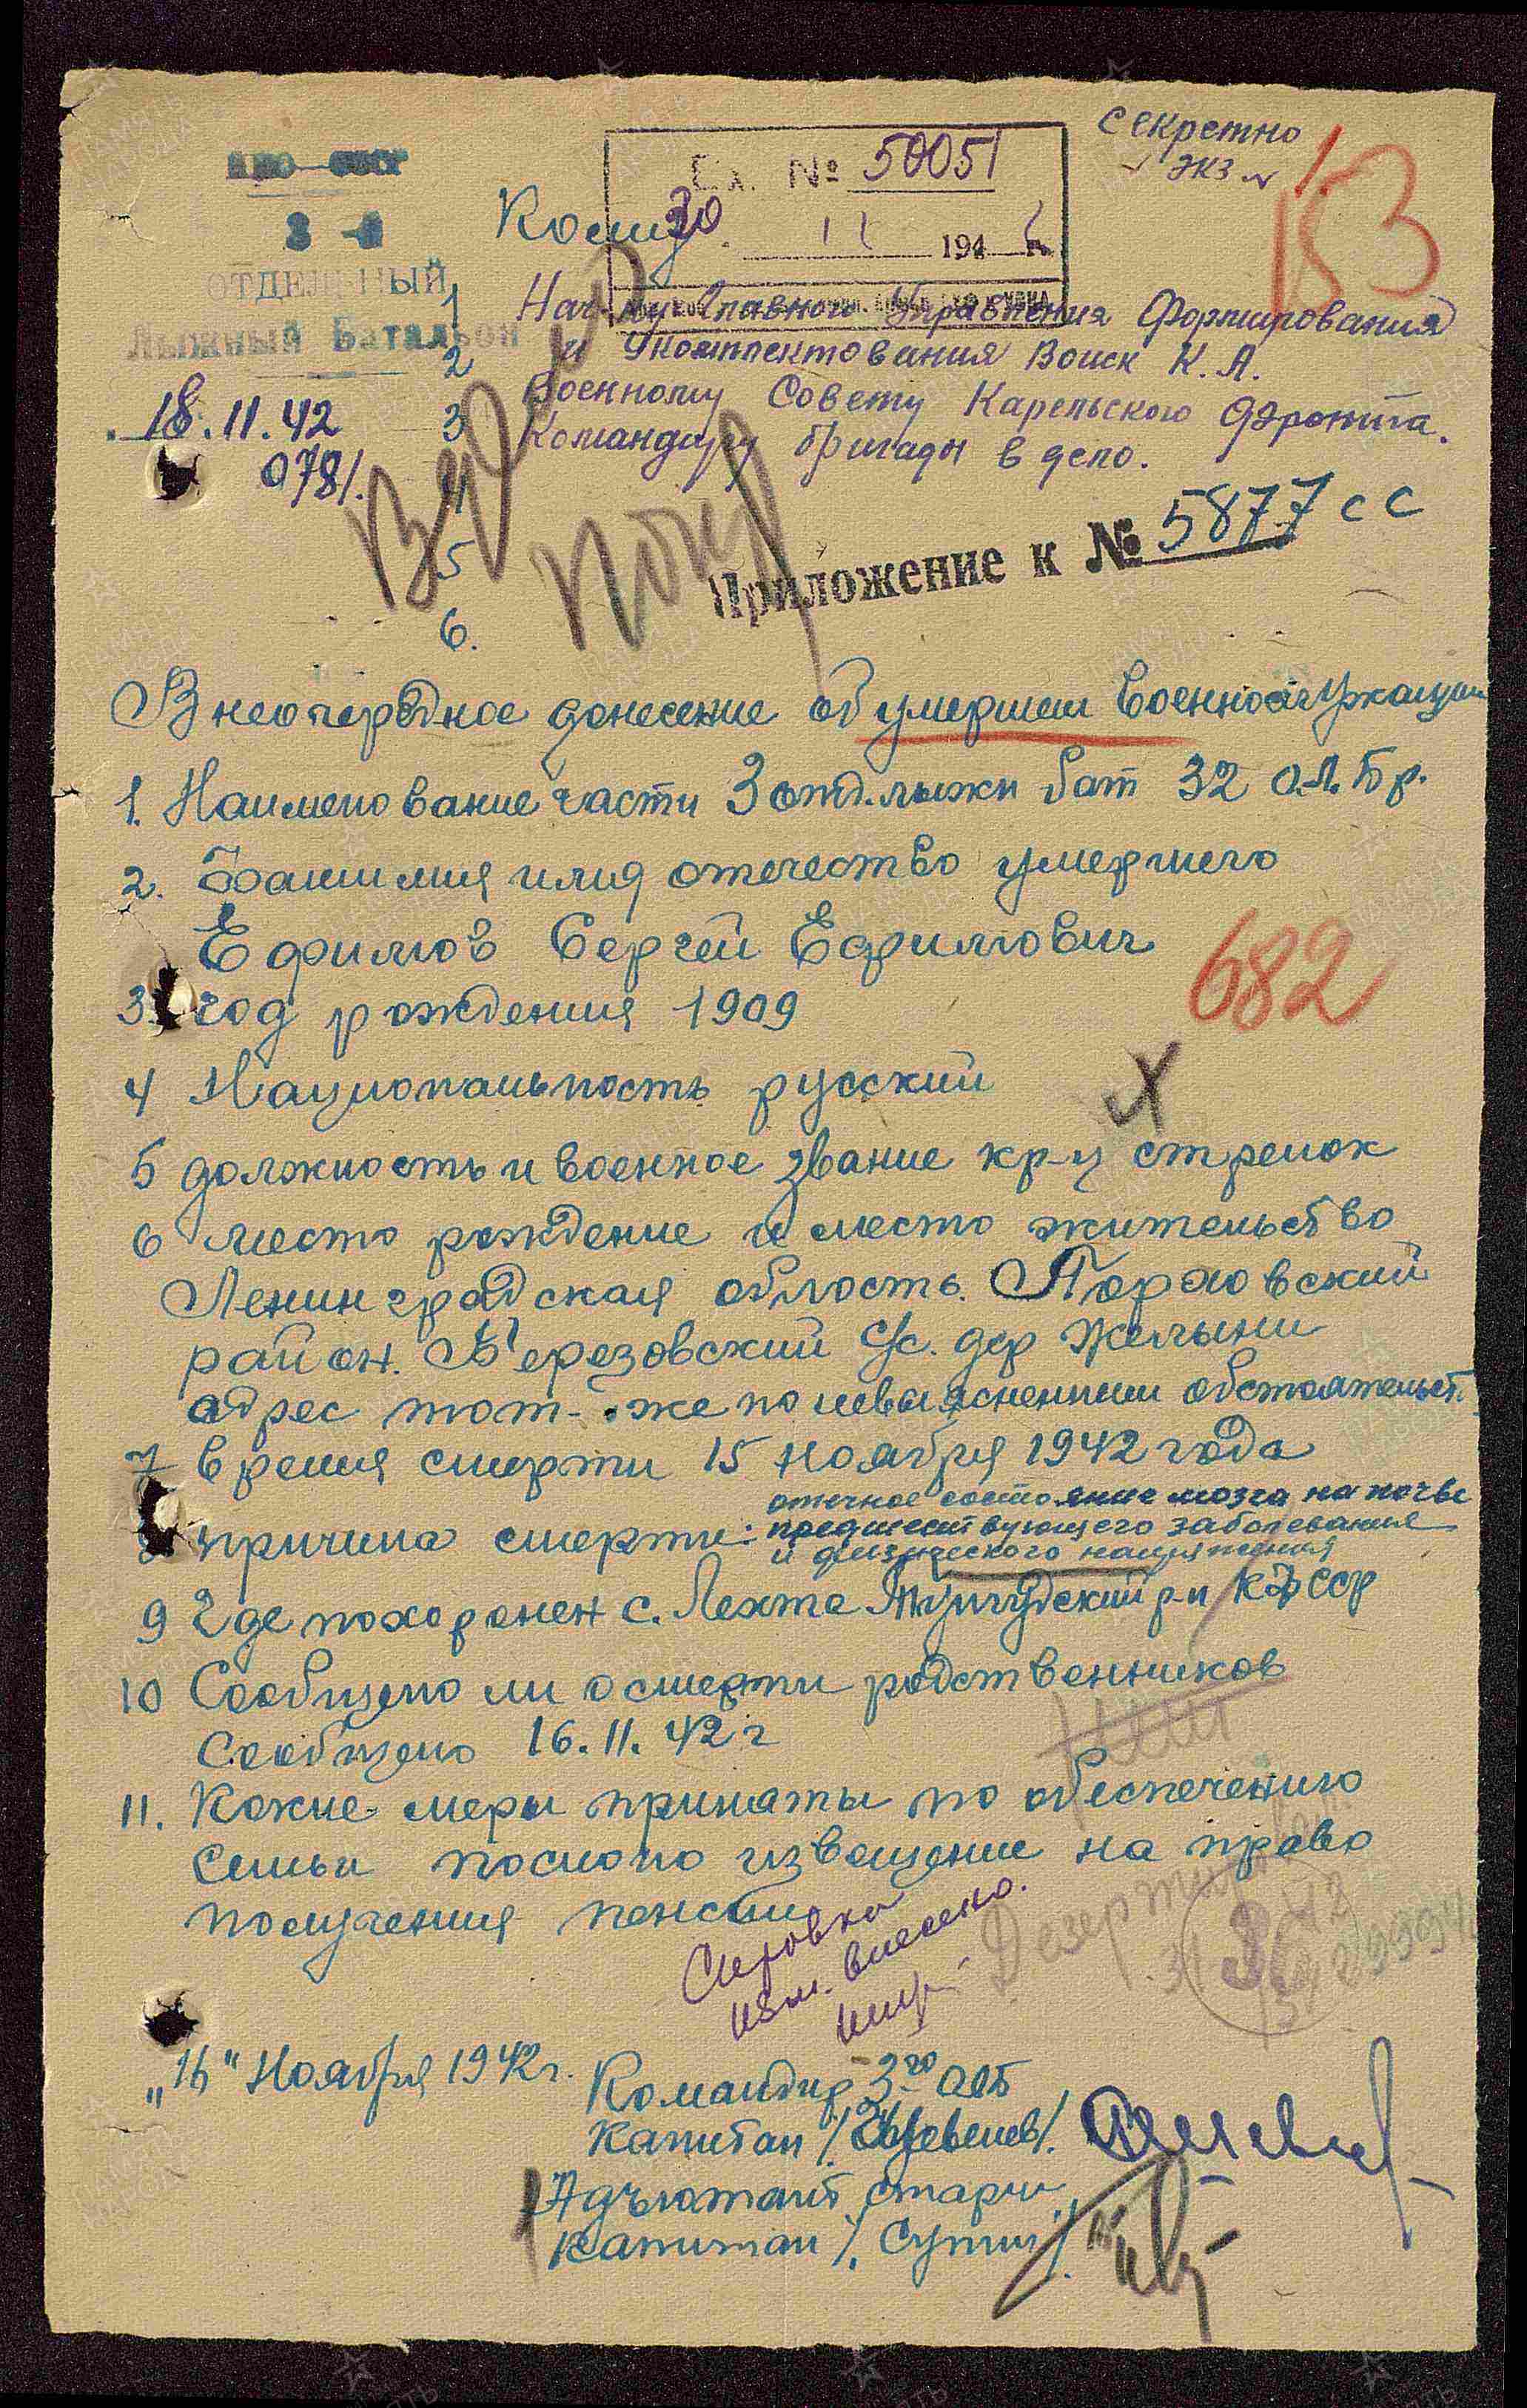 Секретно
экз №
НКО СССР
3-й
ОТДЕЛЬНЫЙ
Лыжный Батальон
18.11.42
0781.
Вх. № 50051
30 11 194 2 г.
Кому
1 Нач-ку Главного Управления Формирования
2 и Укомплектования Войск К.А.
3 Военному Совету Карельского Фронта.
4 Командиру бригады в дело.
5
6.
153
Приложение к № 5877 сс
Внеочередное донесение об умершем военнослужащем
1. Наименование части 3 отд. лыжн бат 32 О.Л.Бр.
2. Фамилия имя отечество умершего
Ефимов Сергей Ефимович
682
3. год рождения 1909
4 Национальность русский
5 должность и военное звание кр-ц стрелок
6 место рождение и место жительство
Ленинградская область. Порховский
район. Березовский с/с. дер Желыни
адрес тот-же по невыясненным обстоятельст.
7 время смерти 15 ноября 1942 года
8 причина смерти: отечное состояние мозга на почве
предшествующего заболевания
и физического напряжения
9 Где похоронен с. Лехта Тунгудский р-н КФССР
10 Сообщено ли о смерти родственников
Сообщено 16.11.42 г
11. Какие меры приняты по обеспечению
семьи послано извещение на право
получения пенсии
изм. внесено.
"16" Ноября 1942 г.
Командир 3го ОЛБ
Капитан
Адъютант старш
капитан /. Сутин /.